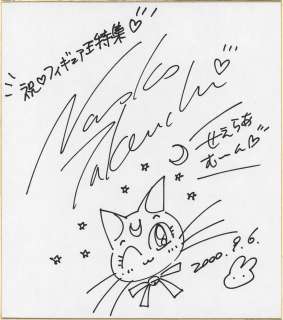 祝♡フィギュア王特集♡
Naoko
Takeuchi♡
せえらあ
むーん♡
2000.9.6.